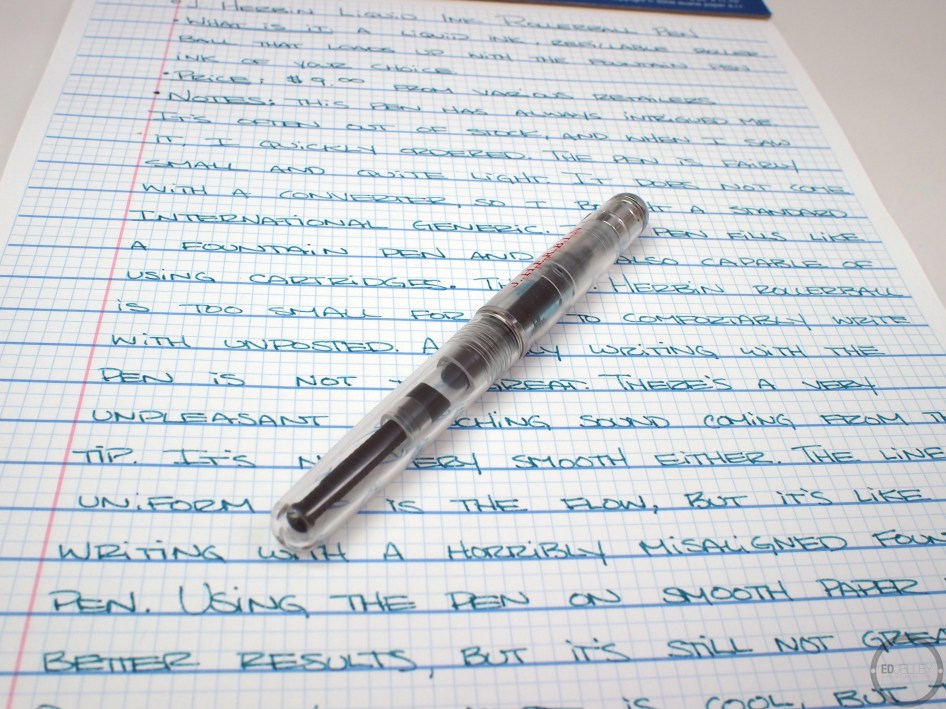 J HERBIN LIQUID INK ROLLERBALL PEN
• WHAT IS IT: A LIQUID INK, REFILLABLE ROLLER
BALL THAT LOADS UP WITH THE FOUNTAIN PEN
INK OF YOUR CHOICE
• PRICE: $9.00 FROM VARIOUS RETAILERS
• NOTES: THIS PEN HAS ALWAYS INTRIGUED ME
IT'S OFTEN OUT OF STOCK, AND WHEN I SAW
IT, I QUICKLY ORDERED. THE PEN IS FAIRLY
SMALL AND QUITE LIGHT. IT DOES NOT COME
WITH A CONVERTER, SO I A STANDARD
INTERNATIONAL GENERIC. PEN FILLS LIKE
A FOUNTAIN PEN AND ALSO CAPABLE OF
USING CARTRIDGES. HERBIN ROLLERBALL
J. HERBIN
IS TOO SMALL FOR TO COMFORTABLY WRITE
WITH UNPOSTED. WRITING WITH THE
PEN IS NOT GREAT. THERE'S A VERY
UNPLEASANT SOUND COMING FROM
TIP. IT'S VERY SMOOTH EITHER. THE LINE
UNIFORM IS THE FLOW, BUT IT'S LIKE
WRITING WITH A HORRIBLY MISALIGNED
PEN. USING THE PEN ON SMOOTH PAPER
BETTER RESULTS, BUT IT'S STILL NOT
IS COOL, BUT